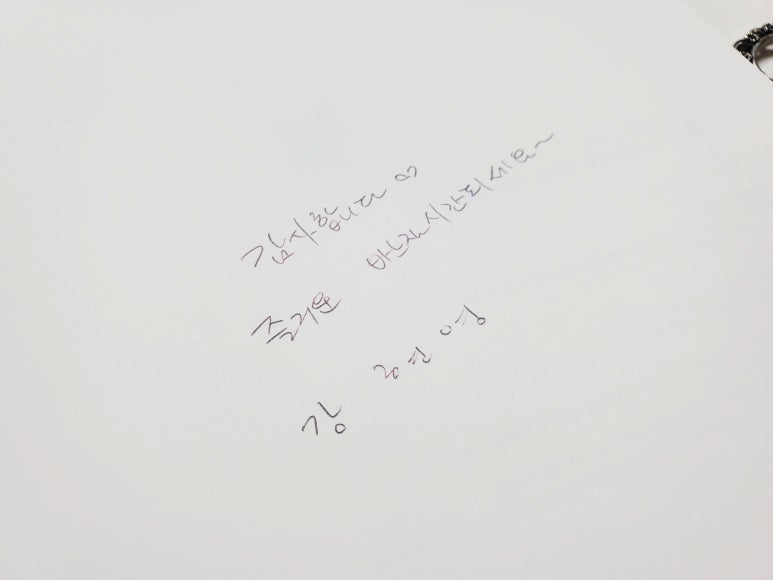 감사합니다 ♡
즐거운 바느질시간되세요~
강